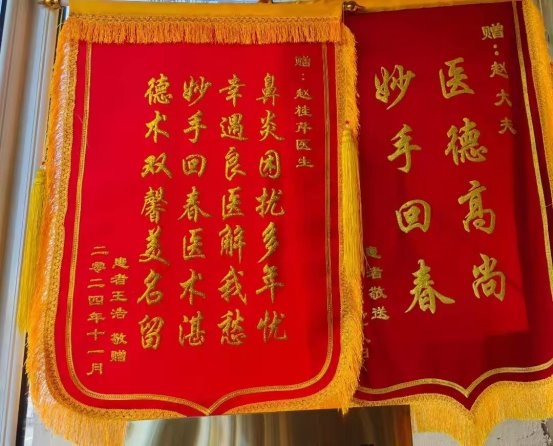 赠：赵桂芹医生
鼻炎困扰多年忧
幸遇良医解我愁
妙手回春医术湛
德术双馨美名留
患者王浩 敬赠
二零二四年十一月
赠：赵大夫
医德高尚
妙手回春
患者敬送